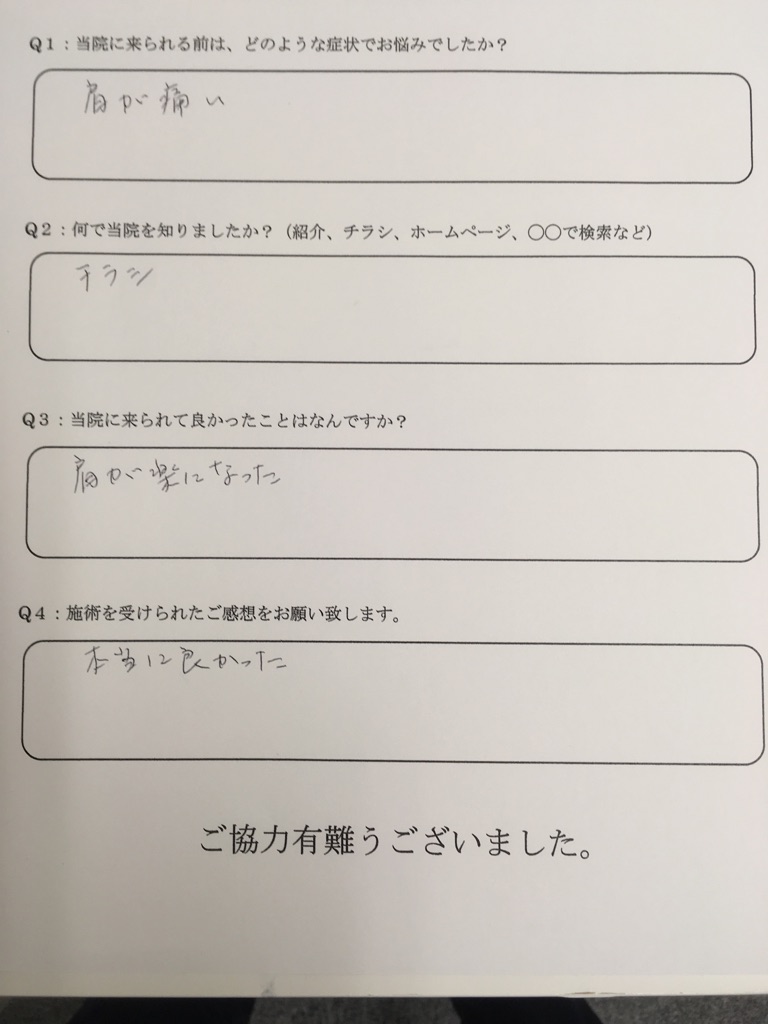 Q1：当院に来られる前は、どのような症状でお悩みでしたか？
肩が痛い
Q2：何で当院を知りましたか？（紹介、チラシ、ホームページ、〇〇で検索など）
チラシ
Q3：当院に来られて良かったことはなんですか？
肩が楽になった
Q4：施術を受けられたご感想をお願い致します。
本当に良かった
ご協力有難うございました。